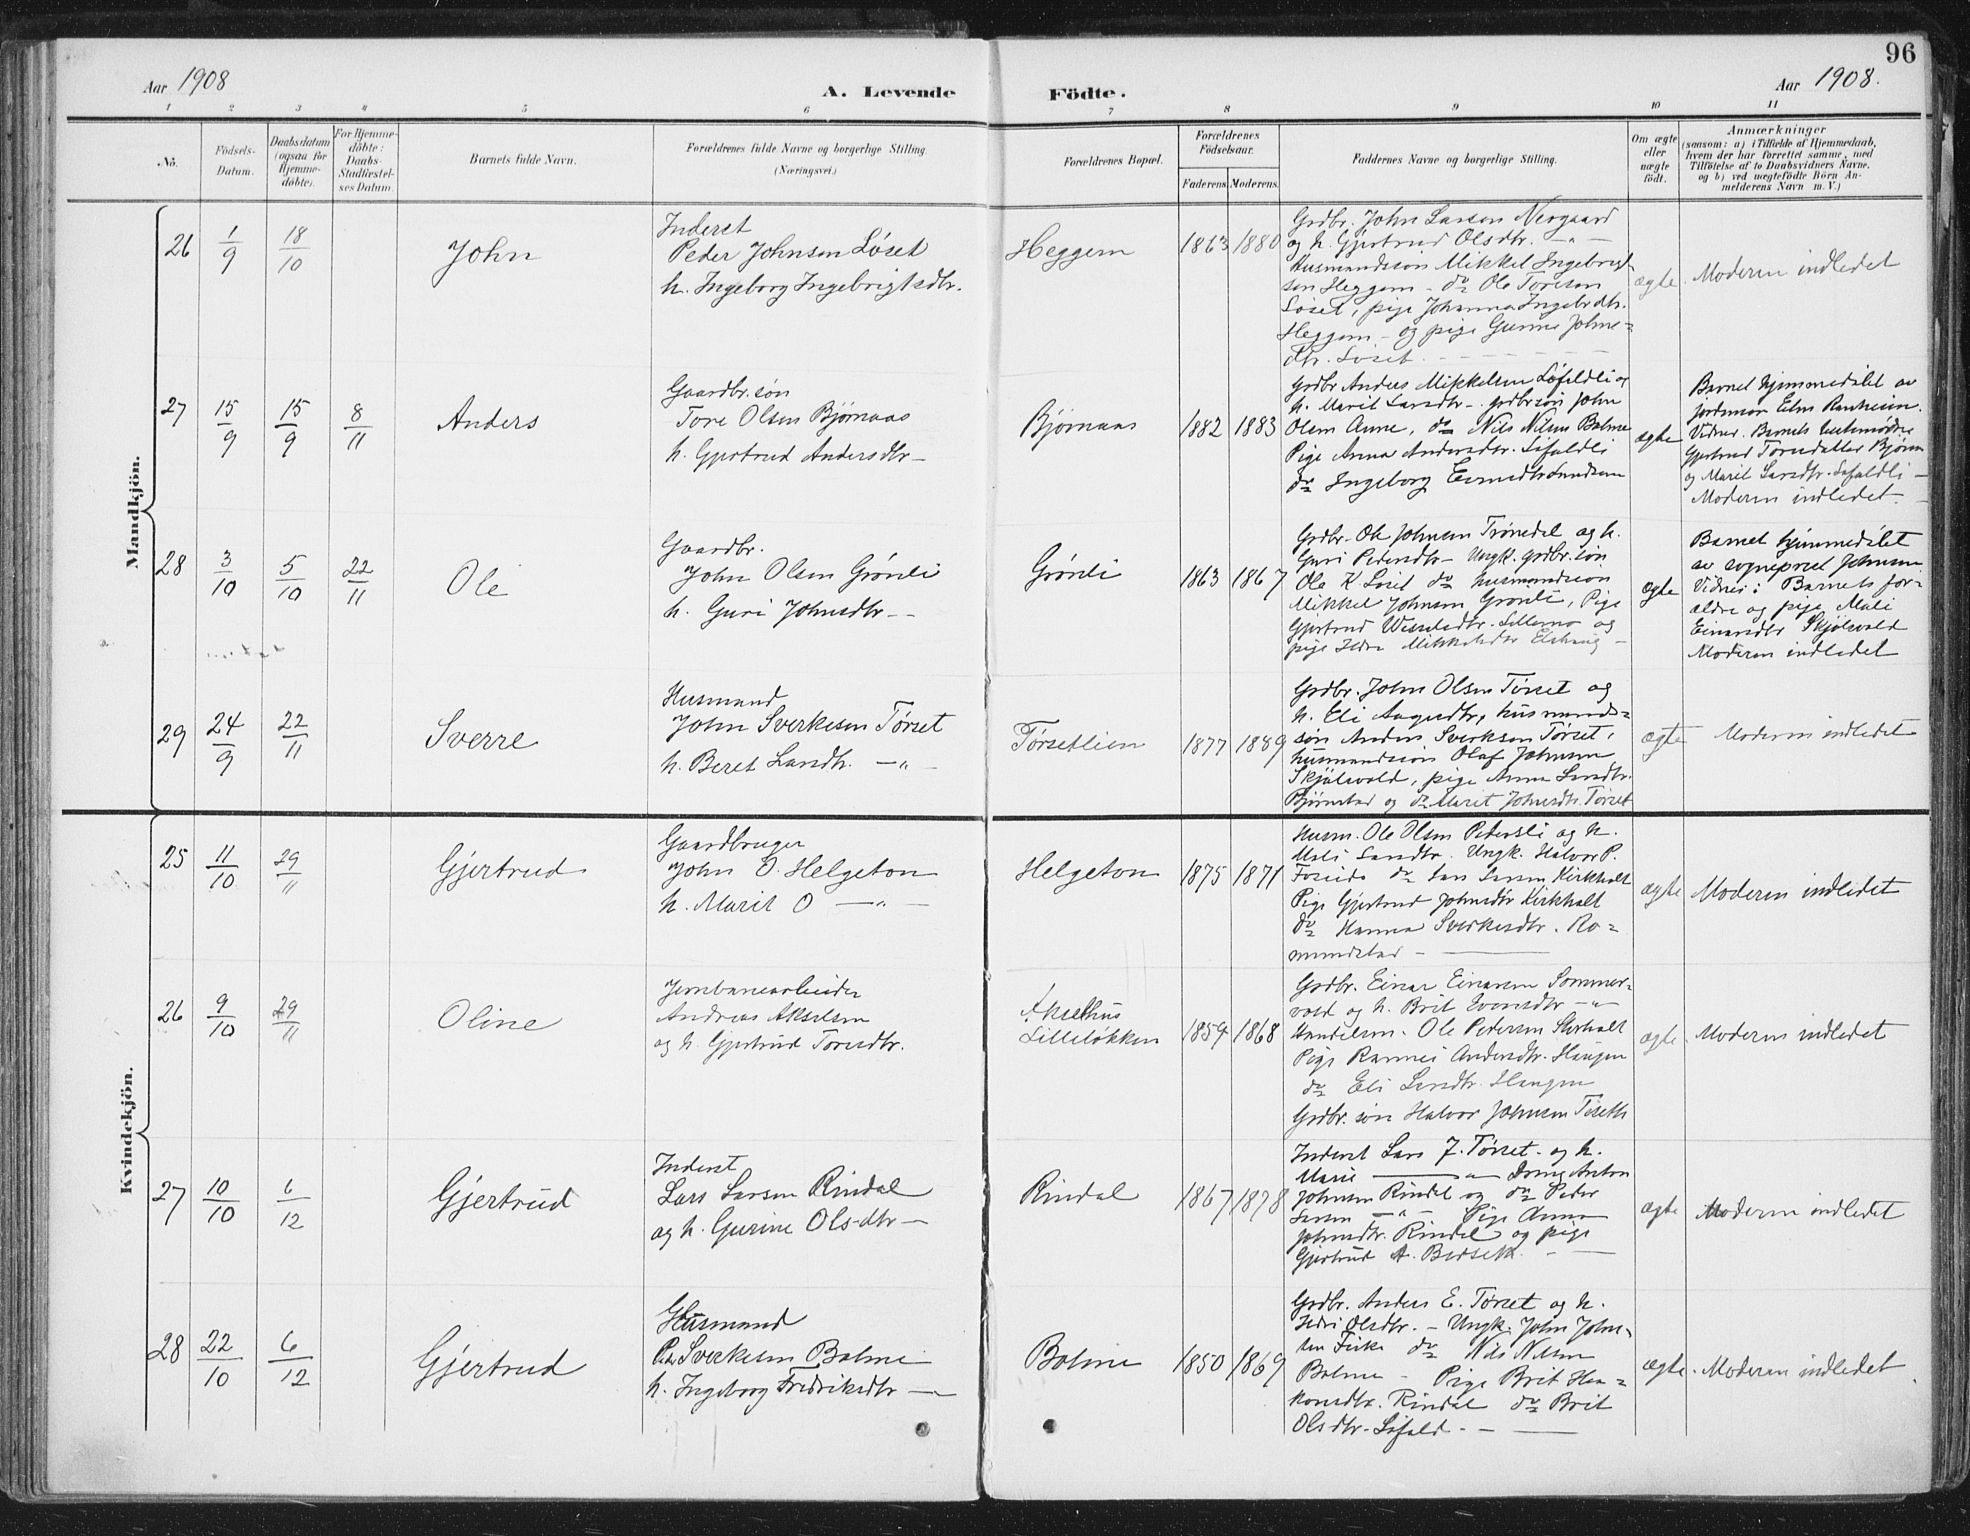 96
Aar 1908
A. Levende
Födte.
Aar 1908.
1 2 3 4 5 6 7 8 9 10 11
No.
Födsels-
Datum.
Daabsdatum
(ogsaa for
Hjemme-
döbte).
For Hjemme-
döbte:
Daabs-
Stadfæstel-
ses Datum.
Barnets fulde Navn.
Forældrenes fulde Navne og borgerlige Stilling.
(Næringsvei.)
Forældrenes Bopæl.
Forældrenes
Födselsaar.
Faderens. Moderens.
Faddernes Navne og borgerlige Stilling.
Om ægte
eller
uægte
födt.
Anmærkninger
(saasom: a) i Tilfælde af Hjemmedaab,
hvem der har forrettet samme, med
Tilföielse af to Daabsvidners Navne,
og b) ved uægtefödte Börn An-
melderens Navn m. V.)
Mandkjön.
26
1/9
18/10
John
Inderst
Peder Johnsen Løset
h. Ingeborg Ingebrigtsdtr.
Heggem
1863 1880
Grdbr. John Larsen Nergaard
og h. Gjertrud Olsdtr. — " —
Husmandssøn Mikkel Ingebrigt-
sen Heggem - do Ole Toresen
Løset, pige Johanna Ingebrdtr.
Heggem - og pige Gunna Johns-
dtr. Løset.
ægte
Moderen indledet
27
15/9
15/9
8/11
Anders
Gaardbr. søn
Tore Olsen Bjørnaas
h. Gjertrud Andersdtr —
Bjørnaas
1882 1883
Grdbr Anders Mikkelsen Løfaldli og
h. Marit Larsdtr -. grdbrsøn John
Olsen Aune, do Nils Nilsen Bolme
Pige Anna Andersdtr. Løfaldli
do Ingeborg
ægte
Barnet hjemmedøbt av
jordmor Elen Ranheim.
Vidner. Barnets
Gjertrud Toresdatter
og Marit Larsdtr. Løfaldli —
Moderen indledet.
28
3/10
5/10
22/11
Ole
Gaardbr.
John Olsen Grönli
h. Guri Johnsdtr —
Grönli
1863 1867
Grdbr. Ole Johnsen Trönsdal og h.
Guri Pedersdtr - Ungk. grdbr. søn
Ole K. Løset do husmandssøn
Mikkel Johnsen Grönli, Pige
Gjertrud Lillemo og
pige Mikkelsdtr
ægte
Barnet hjemmedøbt
av sogneprest Johnsen
Vidner: Barnets for-
ældre og pige Mali
Einarsdtr Skjölsvold
Moderen indledet
29
24/9
22/11
Sverre
Husmand
John Sverkesen Törset
h. Beret Larsdtr. — " —
Törsetlien
1877 1889
Grdbr. John Olsen Törset og
h. Eli Aagesdtr, husmands-
søn Anders Sverksen Törset,
husmandssøn Olaf Johnsen
Skjölsvold, pige Anna Larsdtr.
Bjørnstad og do Marit Johnsdtr. Törset
ægte
Moderen indledet
Kvindekjön.
25
11/10
29/11
Gjertrud
Gaardbruger
John O. Helgeton
h. Marit O — " —
Helgeton
1875 1871
Husm. Ole Olsen Pedersli og h.
Mali Larsdtr. Ungk. Halvor P.
Foseide do Lars Larsen Kirkholt
Pige Gjertrud Johnsdtr Kirkholt
do Hanna Sverkesdtr. Ro-
mundstad —
ægte
Moderen indledet
26
9/10
29/11
Oline
Jernbanearbeider
Andreas Akselsen
og h. Gjertrud Toresdtr.
Lilleløkken
1859 1868
Grdbr. Einar Einarsen Sommer-
vold og h. Brit Evensdtr — " —
Handelsm. Ole Pedersen
Pige Rannei Andersdtr. Haugen
do Eli Larsdtr. Haugen
Grdbr. søn Halvor Johnsen Töseth
ægte.
Moderen indledet
27
10/10
6/12
Gjertrud
Inderst
Lars Larsen Rindal
og h. Gurine Olsdtr —
Rindal
1867 1878
Inderst Lars J. Törset og h.
Marie — " — Dreng Anton
Johnsen Rindal og do Peder
Larsen — " — Pige Anna
Johnsdtr. Rindal og pige
Gjertrud A.
ægte
Moderen indledet
28
22/10
6/12
Gjertrud
Husmand
Peder Sverkesen Bolme
h. Ingeborg Fredriksdtr —
Bolme
1850 1869
Grdbr. Anders E. Törset og h.
Sidri Olsdtr. - Ungk. John John-
sen Fiske do Nils Nilsen
Bolme - Pige Brit Haa-
konsdtr. Rindal do Brit
Olsdtr. Løfald. —
ægte.
Moderen indledet